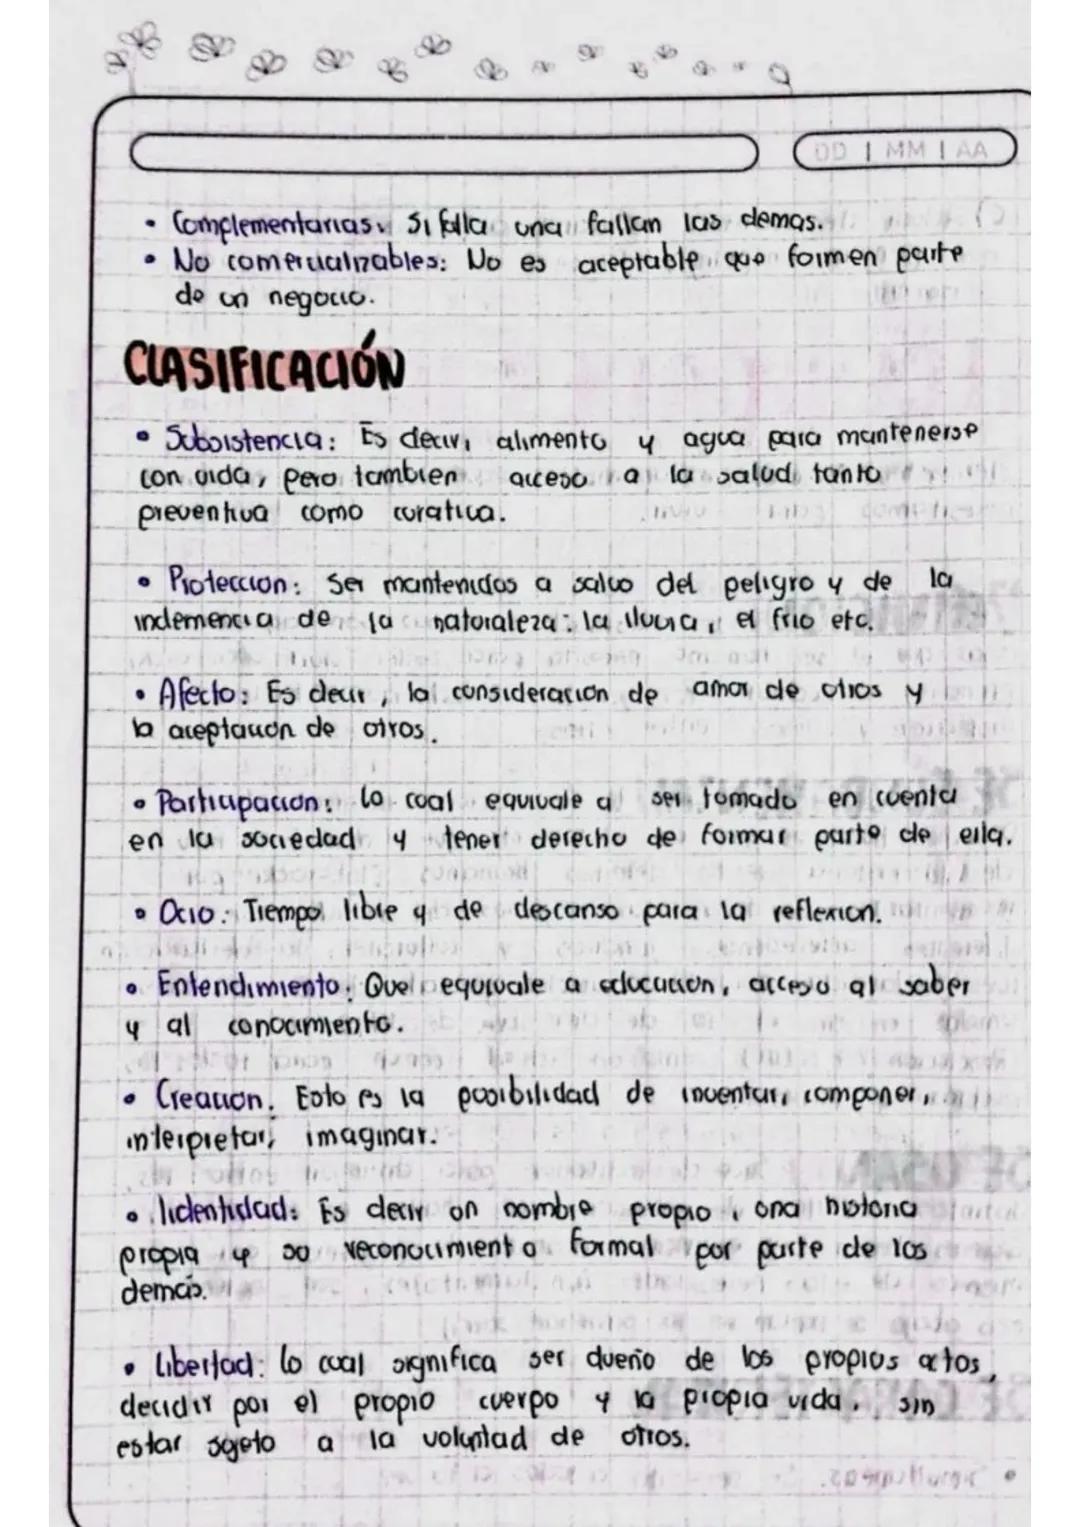 DD | MM | AA
• Complementarias: Si falla una fallan las demas.
• No comercializables: No es aceptable que formen parte
de un negocio.
CLASIFICACIÓN
• Subsistencia: Es decir, alimento y agua para mantenerse
con vida, pero tambien acceso a la salud tanto
preventiva como curativa.
• Proteccion: Ser mantenidos a salvo del peligro y de la
indemencia de la naturaleza: la lluvia, el frio etc.
• Afecto: Es decir, la consideracion de amor de otros y
la aceptacion de otros.
• Participacion: lo cual equivale a ser tomado en cuenta
en la sociedad y tener derecho de formar parte de ella.
• Ocio: Tiempo libre y de descanso para la reflexion.
• Entendimiento: Que equivale a educacion, acceso al saber
y al conocimiento.
• Creacion. Esto es la posibilidad de inventar, componer,
interpretar, imaginar.
• Iidentidad: Es decir un nombre propio, una historia
propia y su reconocimiento formal por parte de los
demás.
• Libertad: lo cual significa ser dueño de los propios actos,
decidir por el propio cuerpo y la propia vida, sin
estar sujeto a la voluntad de otros.